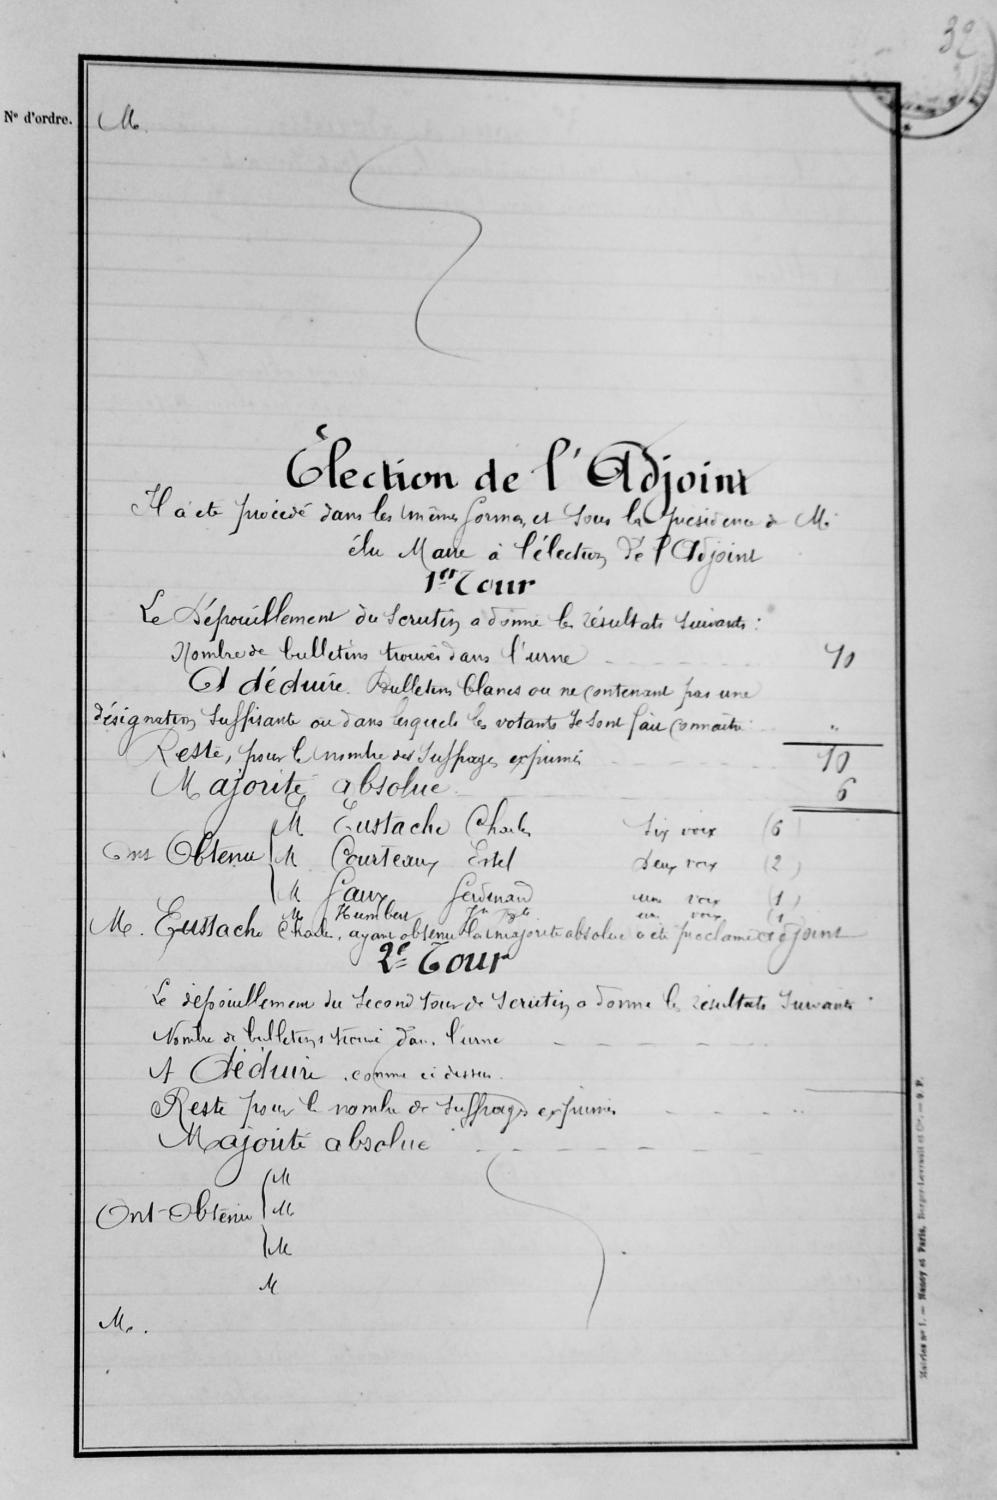 32
N° d'ordre.
M.
Élection de l'Adjoint
Il a été procédé dans les mêmes formes, et sous la présidence de M.
élu Maire à l'élection de l'Adjoint
1er Tour
Le Dépouillement du Scrutin a donné les résultats suivants :
Nombre de bulletins trouvés dans l'urne 10
A déduire. Bulletins blancs ou ne contenant pas une
désignation suffisante ou dans lesquels les votants se sont fait connaître "
Reste, pour le nombre des suffrages exprimés 10
Majorité absolue 6
M Eustache Charles six voix (6)
Ont Obtenu M Courteaux Estel deux voix (2)
M Ferdinand une voix (1)
M Humbert une voix (1
M. Eustache Charles, ayant obtenu la majorité absolue a été proclamé adjoint
2e Tour
Le dépouillement du second tour de scrutin a donné les résultats suivants :
Nombre de bulletins trouvé dans l'urne
A déduire comme ci dessus.
Reste pour le nombre de suffrages exprimés "
Majorité absolue
M
Ont Obtenu M
M
M
M.
Mairies n° 1. — Nancy et Paris, Berger-Levrault et Cie. — 9. P.